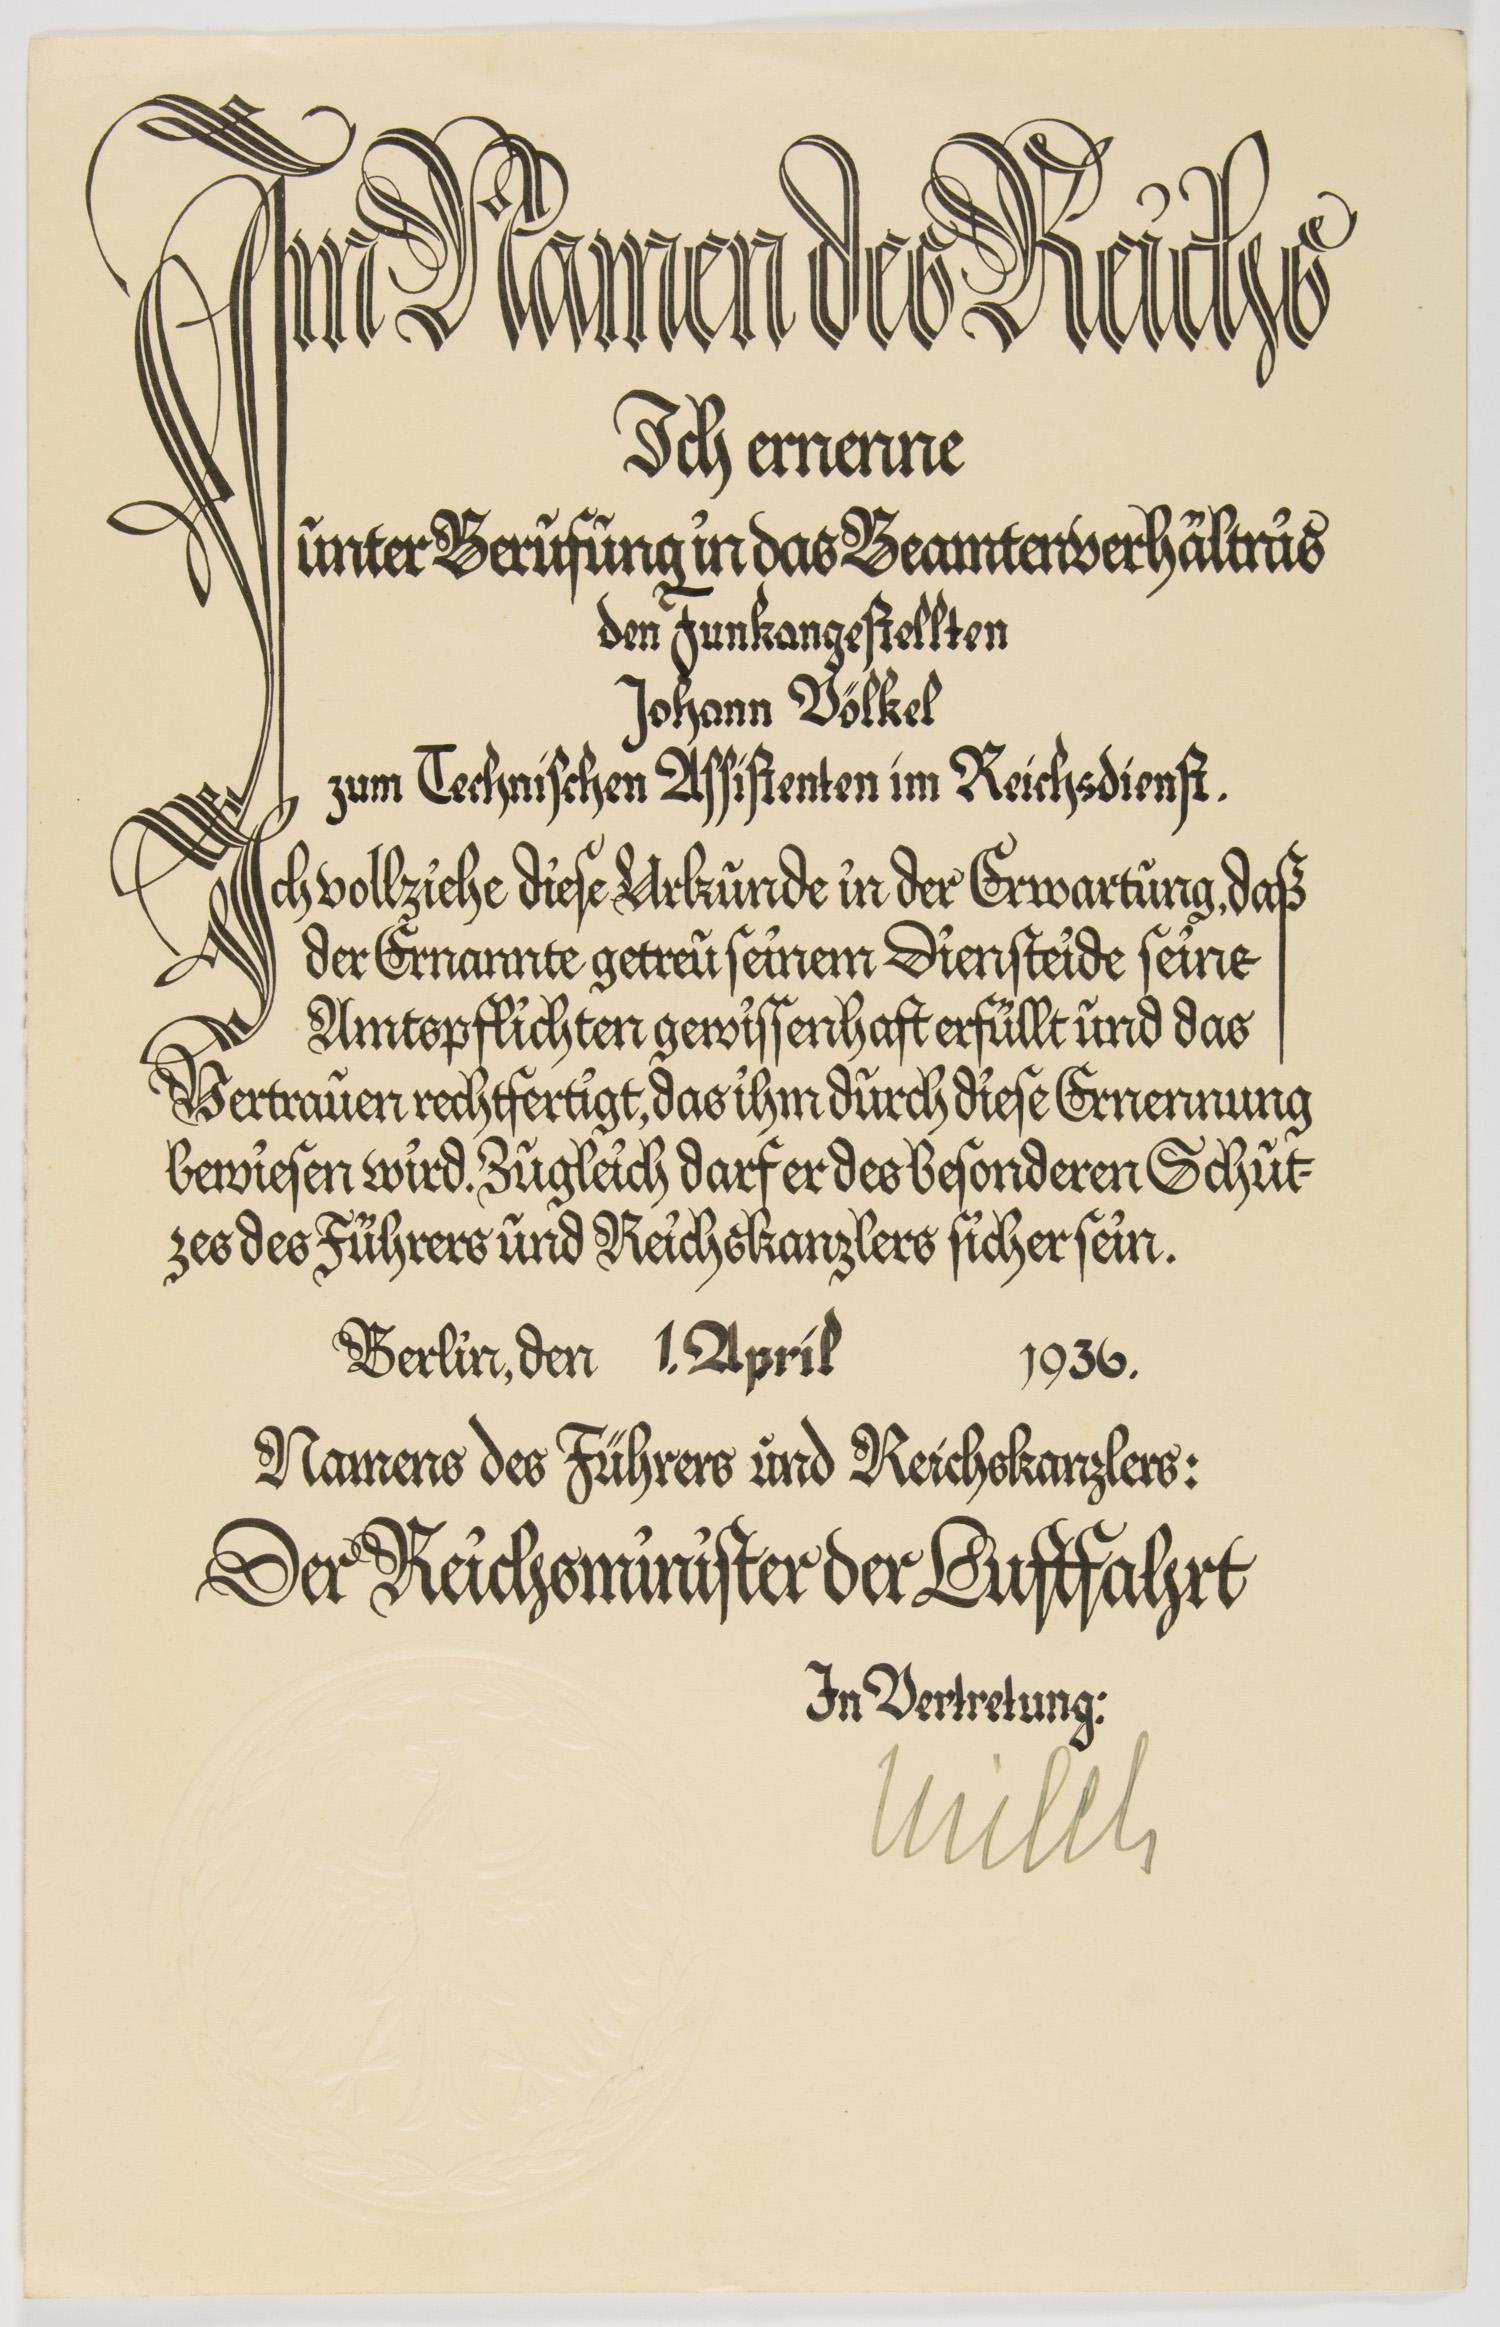 Im Namen des Reichs
Ich ernenne
unter Berufung in das Beamtenverhältnis
den Funkangestellten
Johann Völkel
zum Technischen Assistenten im Reichsdienst.
Ich vollziehe diese Urkunde in der Erwartung, daß
der Ernannte getreu seinem Diensteide seine
Amtspflichten gewissenhaft erfüllt und das
Vertrauen rechtfertigt, das ihm durch diese Ernennung
bewiesen wird. Zugleich darf er des besonderen Schut-
zes des Führers und Reichskanzlers sicher sein.
Berlin, den 1. April 1936.
Namens des Führers und Reichskanzlers:
Der Reichsminister der Luftfahrt
In Vertretung:
Milch